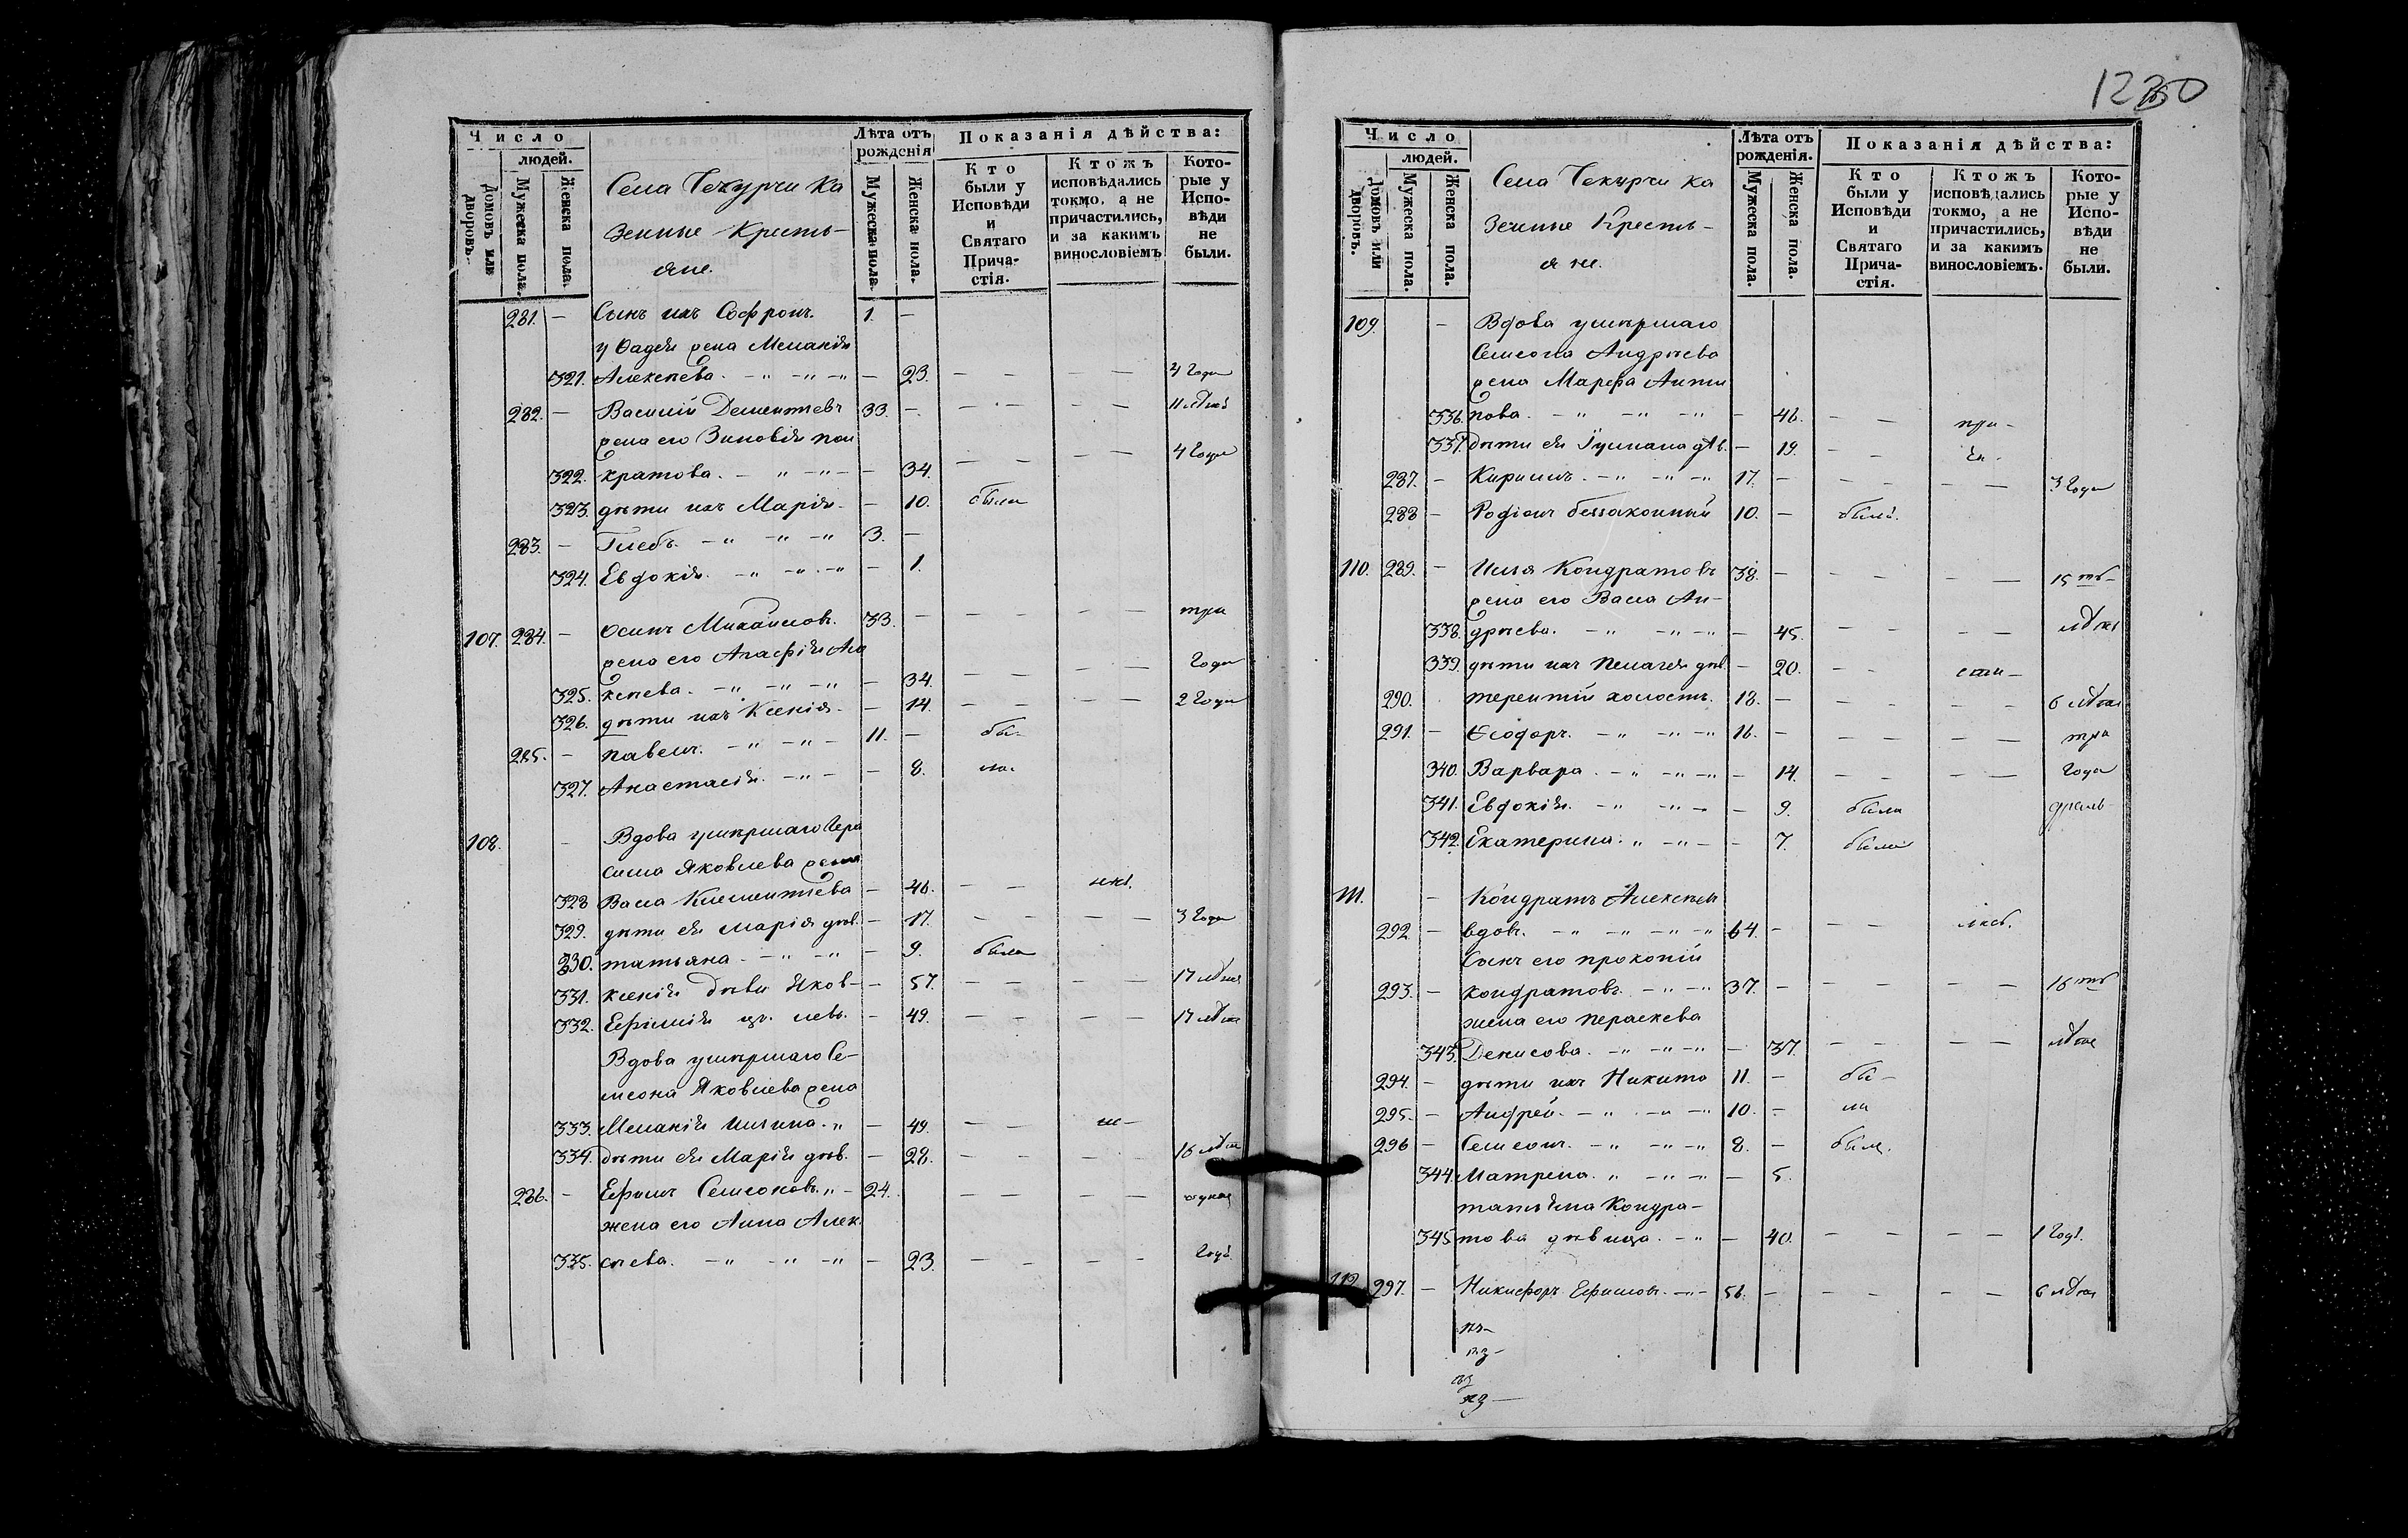 Число
людей.
Домовъ или дворовъ.
Мужеска пола.
Женска пола.
Села Чекурчи Ка
зенные Кресть-
яне.
Лѣта отъ рожденія
Мужеска пола.
Женска пола.
Показанія дѣйства:
Кто были у Исповѣди и Святаго Прича-стія.
Ктожъ исповѣдались токмо, а не причастились, и за какимъ винословіемъ
Кото-рые у Испо-вѣди не были.
281. — Сынъ ихъ Софронъ. 1. —
у Фадея жена Меланія
321. Алексѣева. — 23. — — — — 4 года
282. — Василій Дементьевъ 33. — — — — — 11 лѣтъ
жена его Зиновія пон
322. кратова. — 34. — — — — 4 года
323. дѣти ихъ Марія — 10. была
283. — Глебъ. 3. —
324. Евдокія. — 1.
107. 284. — Осипъ Михаиловъ. 33. — — — — — три
жена его Агафія Але
325. ксѣева. — 34. — — — — года
326. дѣти ихъ Ксенія — 14. — — — — 2 года
285. — павелъ. 11. — бы-
327. Анастасія. — 8. ла.
108. — Вдова умѣршаго Гера
сима Яковлева жена
328 Васса Клементьева — 46. — —
329. дѣти ея Марія дѣв. — 17. — — — — 3 года
330. татьяна — 9. была
331. ксенія дѣви Яков- — 57. — — — — 17 лѣтъ
332. Ефимія цы. левы. — 49. — — — — 17 лѣтъ
Вдова умѣршаго Се-
меона Яковлева жена
333. Меланія Ильина. — 49. — —
334. дѣти ея Марія дѣв. — 28. — — — — 16 лѣтъ
286. — Ефимъ Семеоновъ. 24. — — — —
жена его Анна Алек
335. сѣева. — 23. — — — — годъ
1230
Число
людей.
Домовъ или дворовъ.
Мужеска пола.
Женска пола.
Села Чекурчи Ка
зенные Кресть-
яне.
Лѣта отъ рожденія.
Мужеска пола.
Женска пола.
Показанія дѣйства:
Кто были у Исповѣди и Святаго Прича-стія.
Ктожъ исповѣдались токмо, а не причастились, и за какимъ винословіемъ.
Кото-рые у Испо-вѣди не были.
109. — Вдова умѣршаго
Семеона Андрѣева
жена Марфа Анти
336. пова. — 46. — — при-
337. дѣти ея Іулиана дѣв. — 19. — —
287. — Кирилъ. 17. — — — — — 3 года
288 — Родіонъ беззаконный 10. — былъ.
110. 289. — Илья Кондратовъ 38. — — — — — 15 ть-
жена его Васса Ан-
338. дрѣева. — 45. — — — — лѣтъ
339. дѣти ихъ пелагея дѣв. — 20. — —
290. терентій холостъ. 18. — — — — — 6 лѣтъ
291. — Ѳеодоръ. 16. — — — — — три
340. Варвара. — 14. — — — — года
341. Евдокія. — 9. была
342. Екатерина. — 7. была
111. — Кондратъ Алексѣев
292 — вдов. 64. — — —
Сынъ его прокопій
293. — кондратовъ. 37. — — — — — 16 ть
жена его параскева
343. Денисова. — 37. — — — — лѣтъ
294. — дѣти ихъ Никита 11. — бы-
295. — Андрей. 10. — ли
296 — Семеонъ. 8. — былъ.
344. Матрена. — 5.
татьяна Кондра-
345 това дѣвица. — 40. — — — — 1 годъ.
112 297. — Никифоръ Ефимовъ. 56. — — — — — 6 лѣтъ